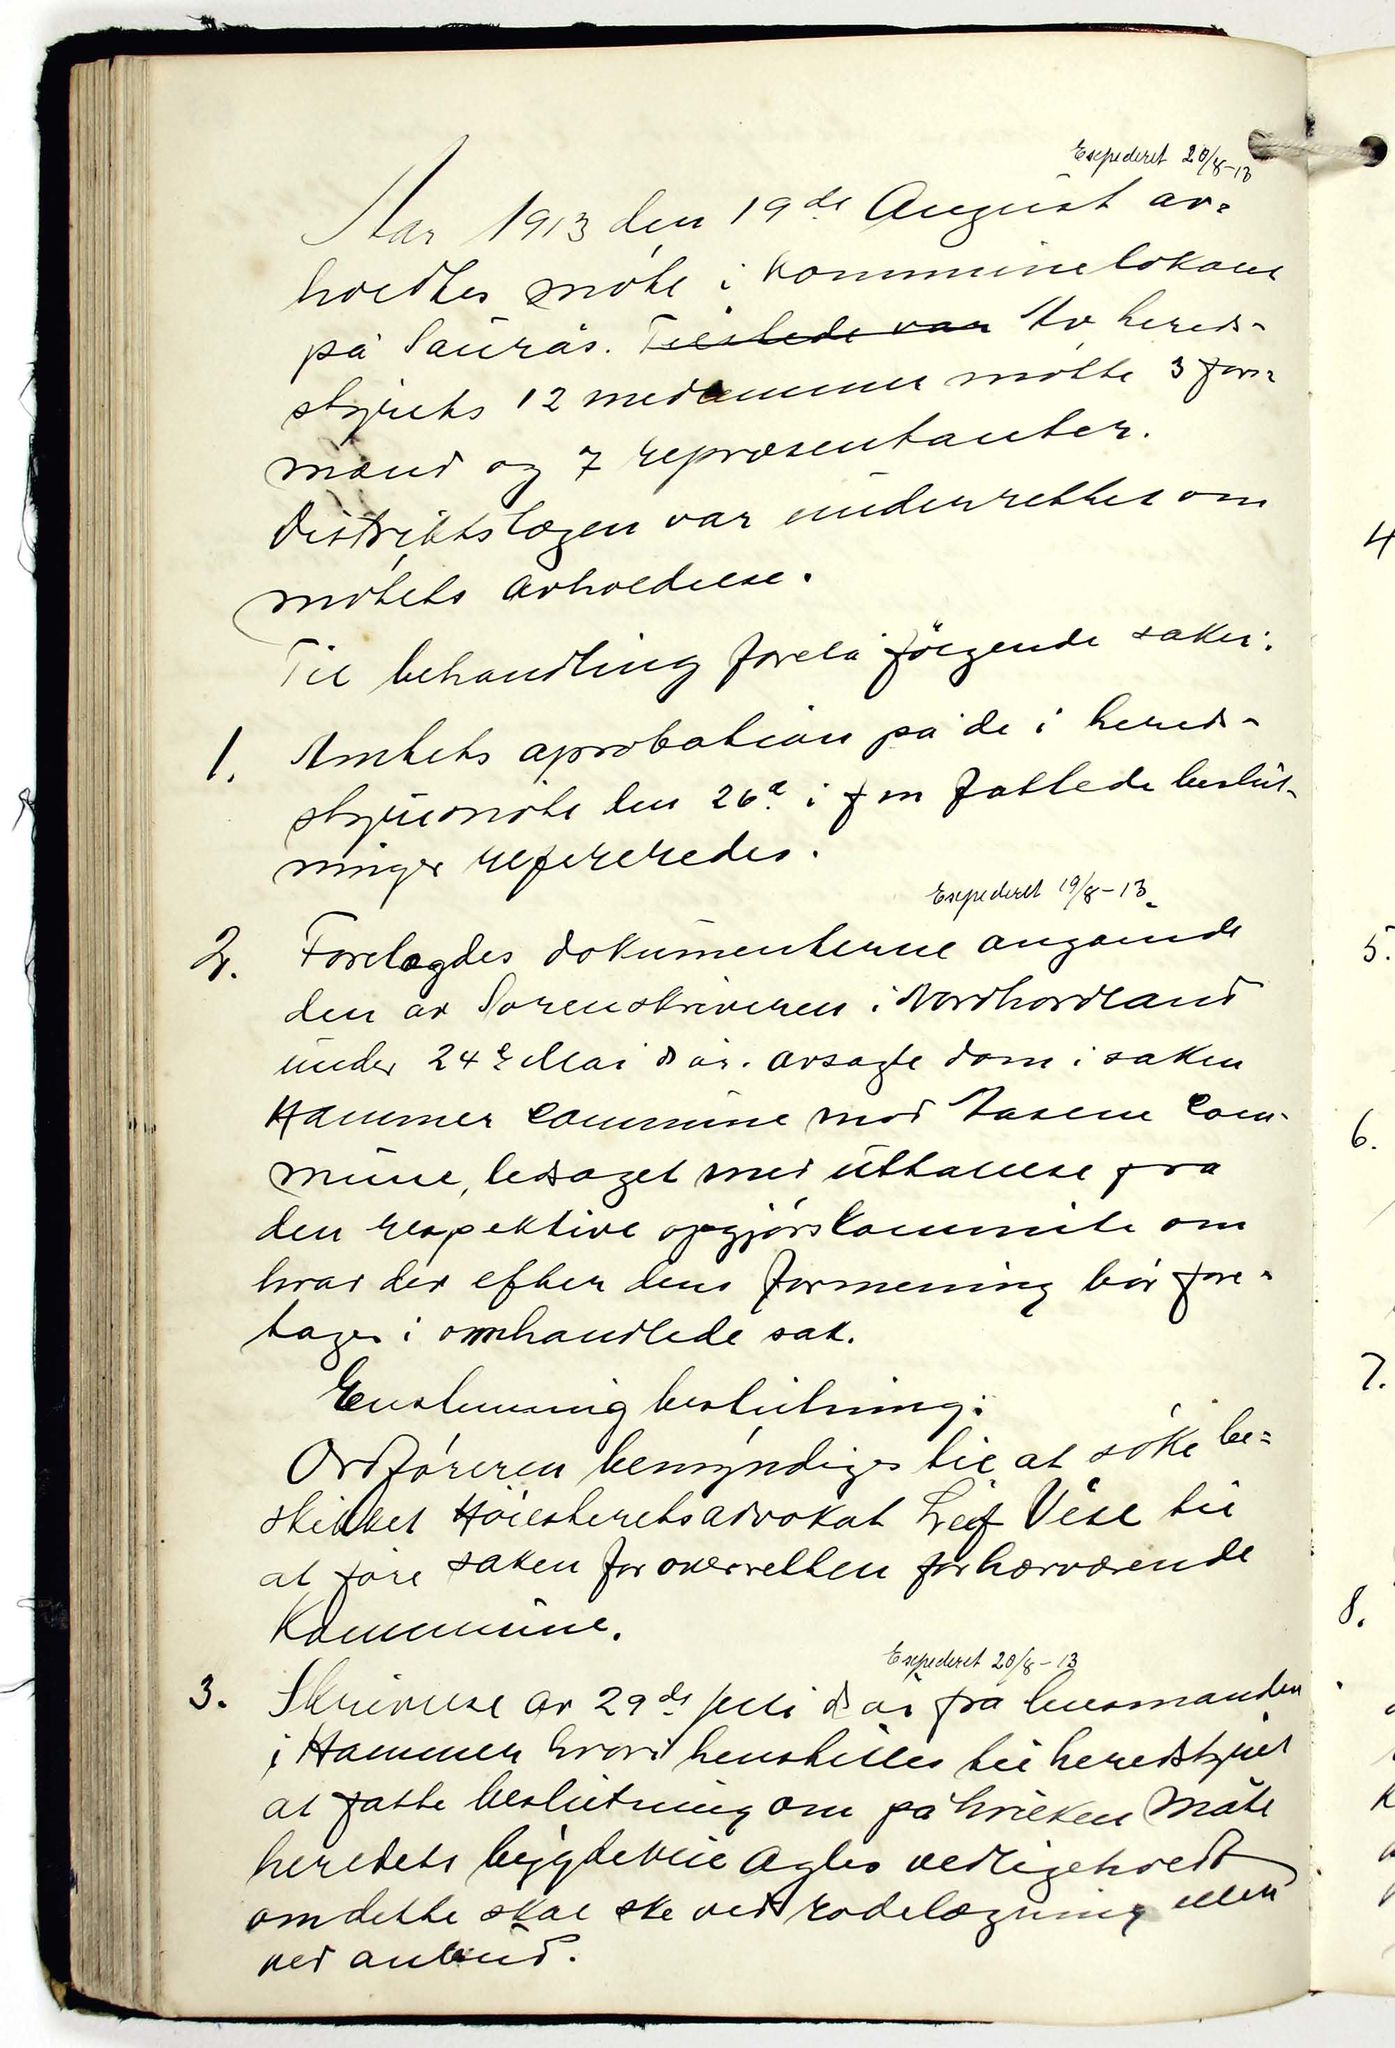 Expederet 20/8-13
Aar 1913 den 19de August av-
holdtes møte i Kommunelokalet
på Saurås. Tilstede var Av hereds-
styrets 12 medlemmer møtte 3 for-
mænd og 7 repræsentanter.
Distriktslægen var underrettet om
møtets avholdelse.
Til behandling forelå følgende saker:
1. Amtets aprobation på de i hereds-
styremøte den 26de i f m fattede beslut-
ninger refereredes.
Expederet 19/8-13.
2. Forelagdes dokumenterne angaaende
den av Sorenskriveren i Nordhordland
under 24de Mai ds år. avsagte dom i saken
Hammer Commune mod Aasene Com-
mune, ledsaget med uttalelse fra
den respektive opgjørskommite om
hvad der efter dens formening bør fore-
tages i omhandlede sak.
Enstemmig beslutning:
Ordføreren bemyndiges til at søke be-
skikket Høiesteretsadvokat Leif Vise til
at føre saken for overretten for hærværende
Kommune.
Expederet 20/8-13
3. Skrivelse av 29de juli ds år fra lensmanden
i Hammer hvori henstilles til heredstyret
at fatte beslutning om på hvilken måte
heredets bygdeveie agtes vedligeholdt
om dette skal ske ved rodelægning eller
ved anbud.
4
5.
6.
7.
8.